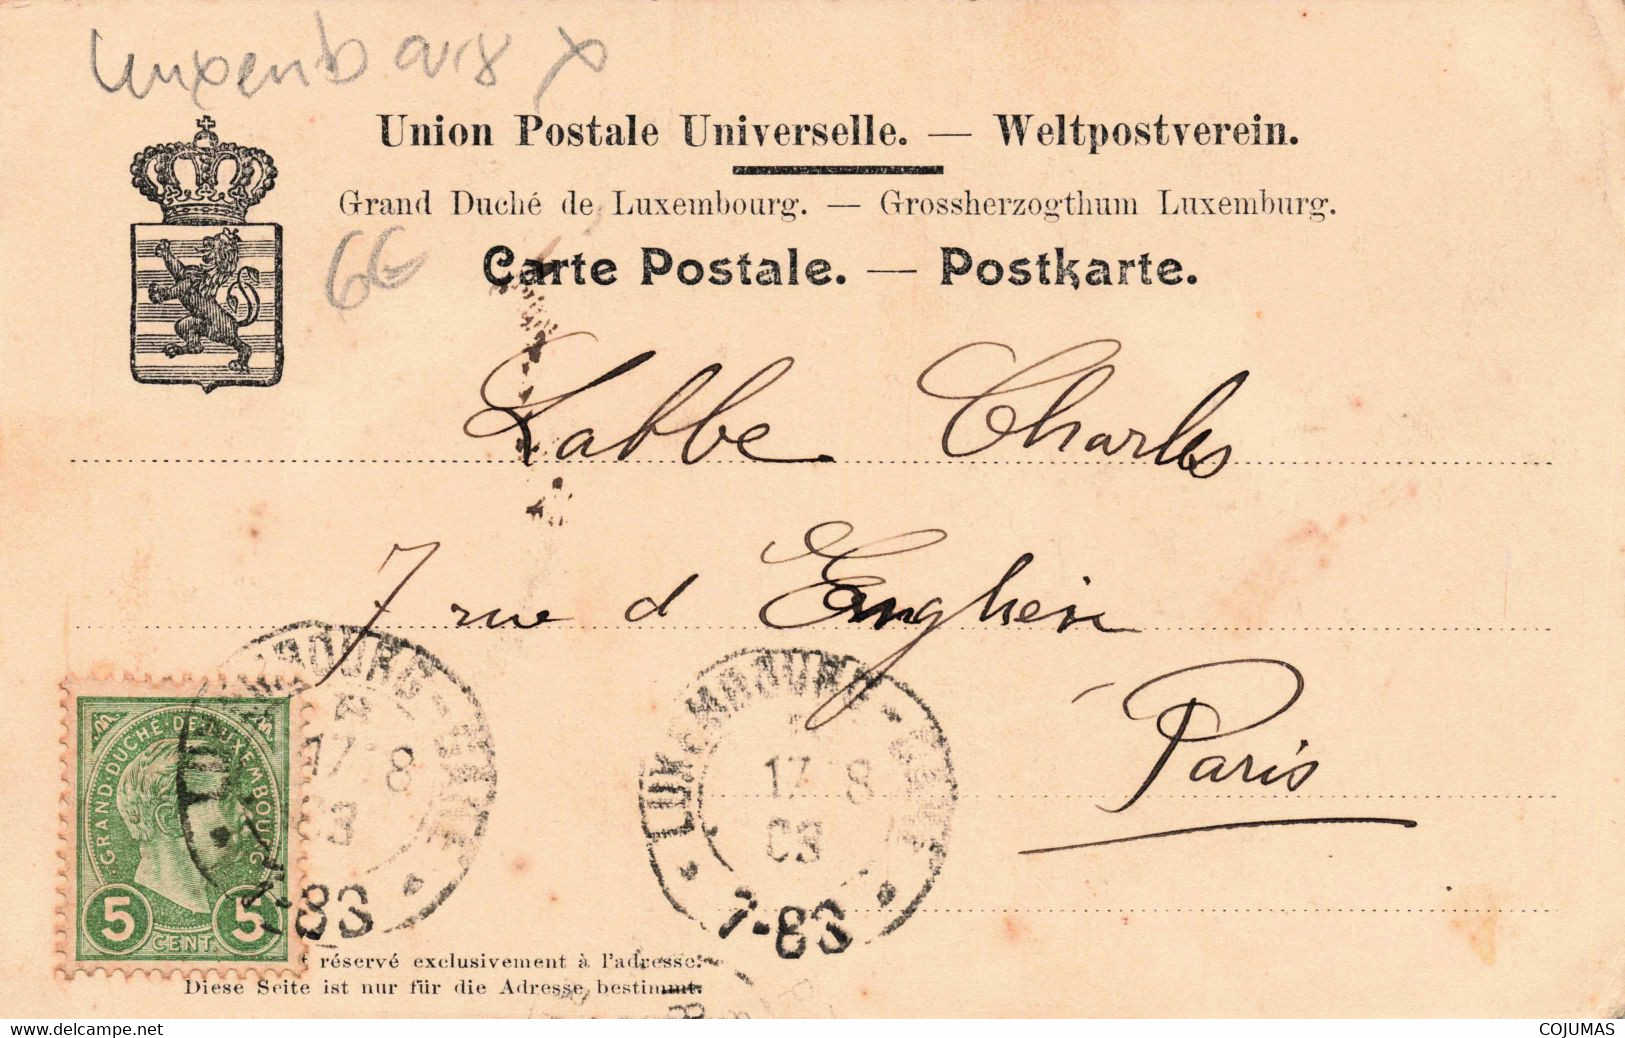 Luxembourg
Union Postale Universelle. — Weltpostverein.
Grand Duché de Luxembourg. — Grossherzogthum Luxemburg.
6€
Carte Postale. — Postkarte.
Labbe Charles
7 rue d Enghien
Paris
GRAND-DUCHÉ-DE-LUXEMBOURG
5 CENT. 5
LUXEMBOURG-
17 8
03
7-8S
LUXEMBOURG-
17 8
03
7-8S
réservé exclusivement à l'adresse.
Diese Seite ist nur für die Adresse bestimmt.
www.delcampe.net
COJUMAS